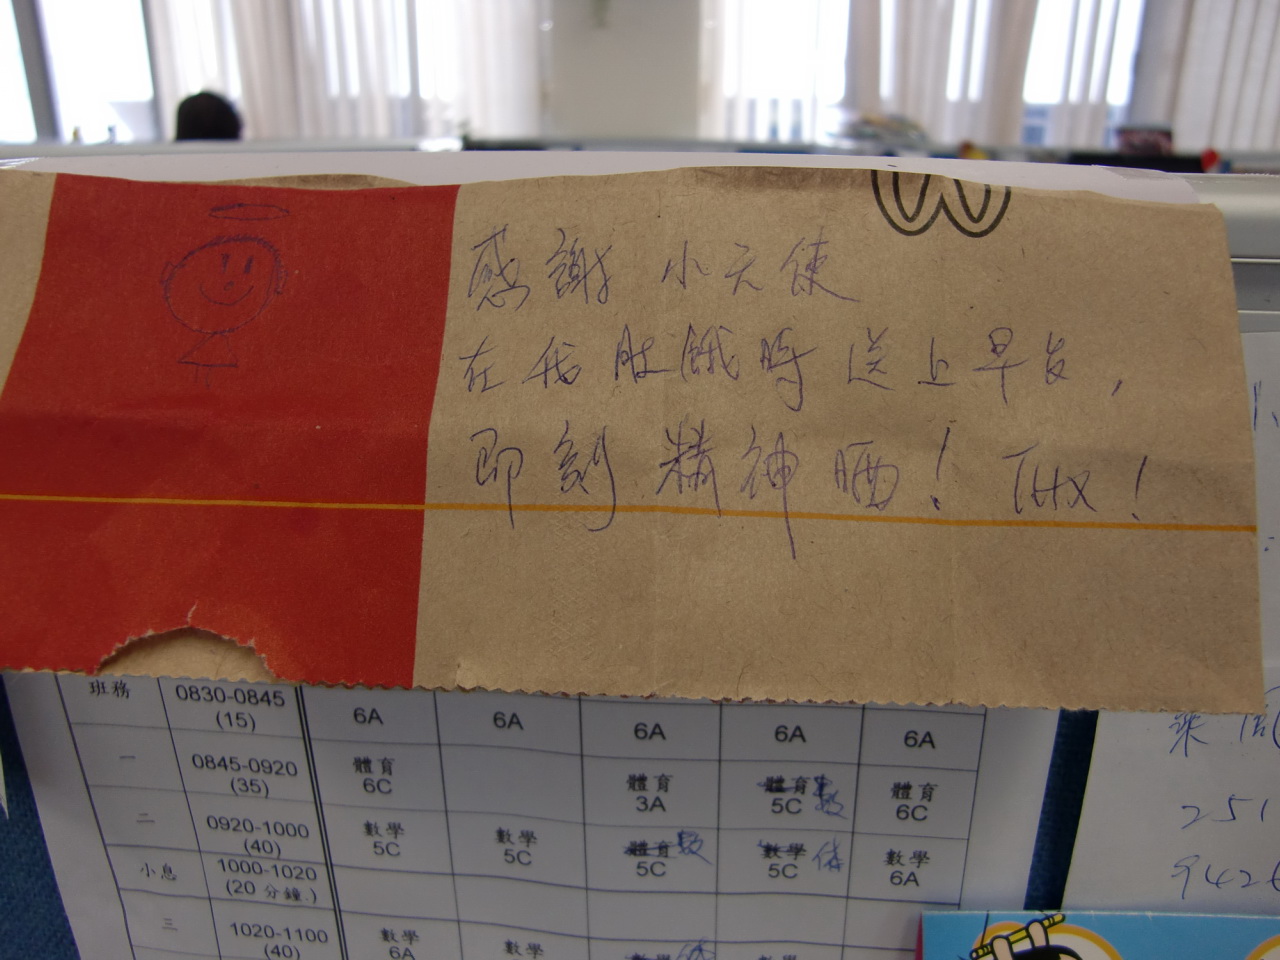 感謝 小天使
在我肚餓時送上早歺,
即刻精神晒! THX!
班務 0830-0845 (15) 6A 6A 6A 6A 6A
一 0845-0920 (35) 體育 6C 體育 3A 體育 數 5C 體育 6C
二 0920-1000 (40) 數學 5C 數學 5C 體育 數 5C 數學 体 5C 數學 6A
小息 1000-1020 (20 分鐘.)
三 1020-1100 (40) 數學 6A 數學 數學 數學
251
942